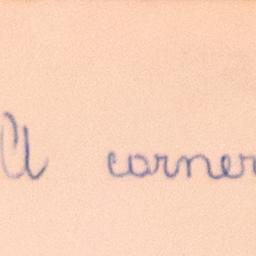 A corner